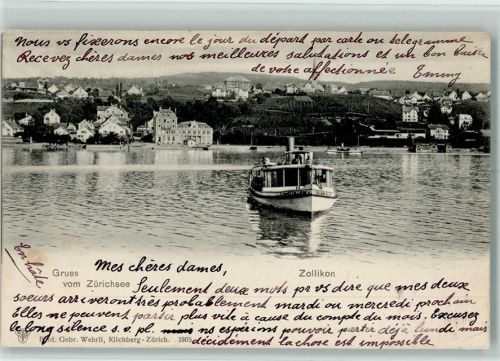 Nous vs fixerons encore le jour du départ par carte ou telegramme
Recevez chères dames nos meilleures salutations et un bon baiser
de votre affectionnée Emmy
En hâte
Mes chères dames,
Gruss
vom Zürichsee
Zollikon
Seulement deux mots pr vs dire que mes deux
soeurs arriveront très probablement mardi ou mercredi prochain
Elles ne peuvent partir plus vite à cause du compte du mois. Excusez
le long silence s. v. pl. mais ns espérions pouvoir partir déjà lundi mais
décidement la chose est impossible
Phot. Gebr. Wehrli, Kilchberg-Zürich. 2805